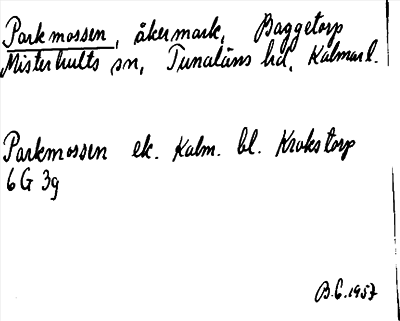 Parkmossen, åkermark, Baggetorp
Misterhults sn, Tunaläns hd, Kalmar l.
Parkmossen ek. Kalm. bl. Krokstorp
6 G 3g
B.G. 1957